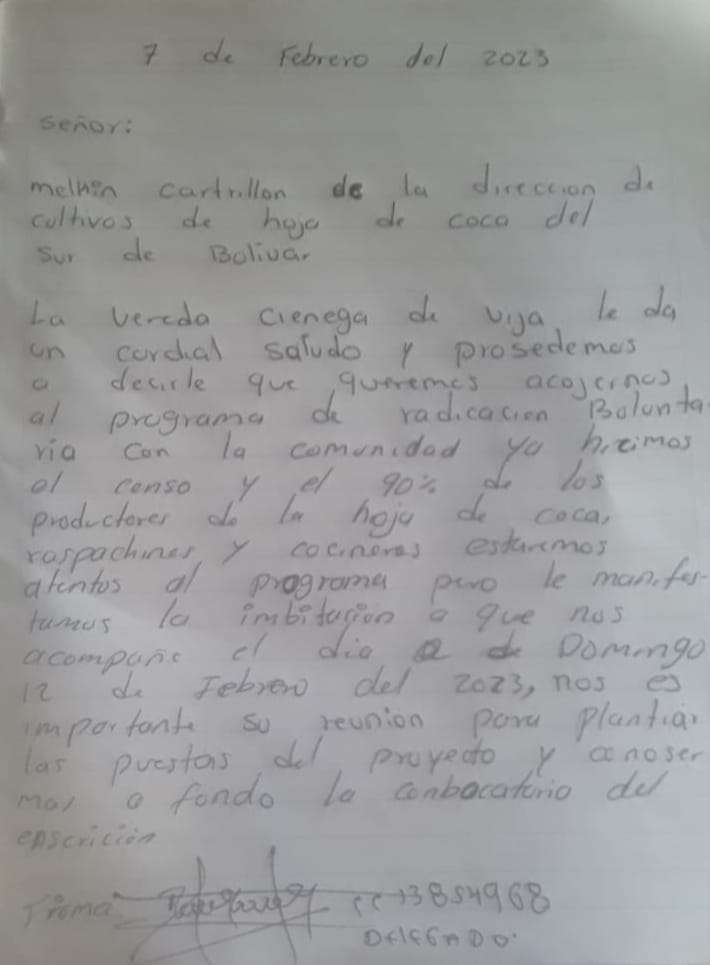 7 de Febrero del 2023
señor:
melhin cartrillon de la direccion de
cultivos de hoja de coca del
sur de Bolivar
La vereda cienega de vija le da
un cordial saludo y prosedemos
a desirle que queremos acojernos
al programa de radicacion Bolunta
ria con la comunidad ya hicimos
el censo y el 90% de los
productores de la hoja de coca,
raspachines y cocineros estaremos
atentos al programa pero le manifes-
tamos la imbitacion a que nos
acompañe el dia de Domingo
12 de Febrero del 2023, nos es
importante su reunion para plantiar
las puestas del proyecto y conoser
mas a fondo la conbocatoria del
enscricion
Firma cc 13854968
DELEGADO.